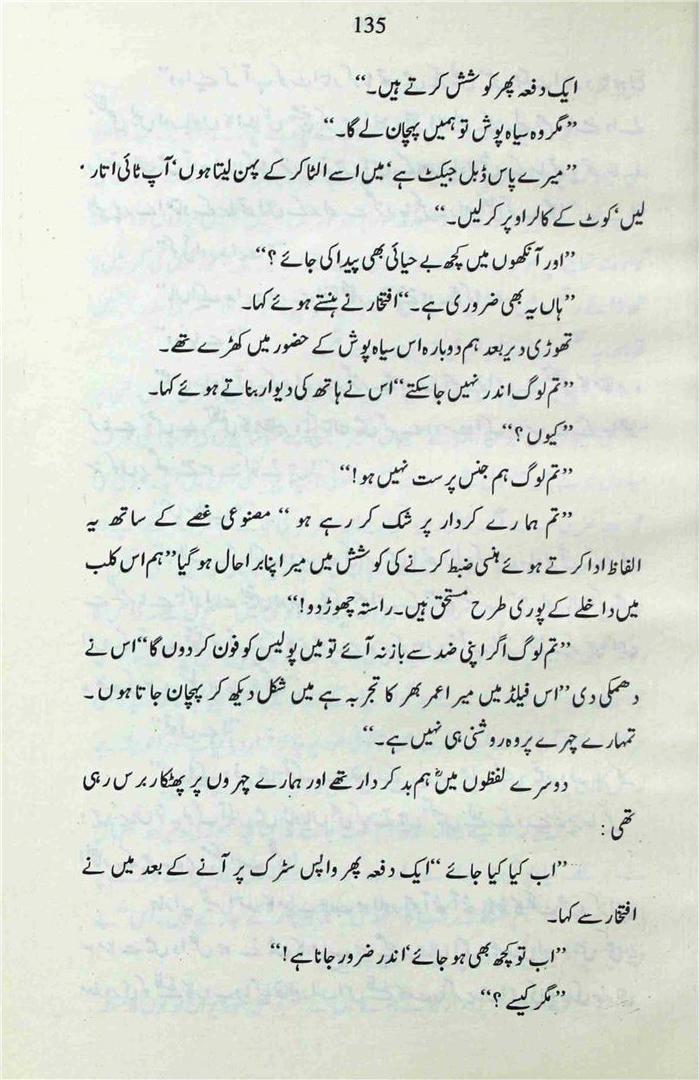 135
ایک دفعہ پھر کوشش کرتے ہیں۔“
”مگر وہ سیاہ پوش تو ہمیں پہچان لے گا۔“
”میرے پاس ڈبل جیکٹ ہے‘ میں اسے الٹا کر کے پہن لیتا ہوں‘ آپ ٹائی اتار
لیں‘ کوٹ کے کالر اوپر کر لیں۔“
”اور آنکھوں میں کچھ بے حیائی بھی پیدا کی جائے؟“
”ہاں یہ بھی ضروری ہے۔“ افتخار نے ہنستے ہوئے کہا۔
تھوڑی دیر بعد ہم دوبارہ اس سیاہ پوش کے حضور میں کھڑے تھے۔
”تم لوگ اندر نہیں جا سکتے“ اس نے ہاتھ کی دیوار بناتے ہوئے کہا۔
”کیوں؟“
”تم لوگ ہم جنس پرست نہیں ہو!“
”تم ہمارے کردار پر شک کر رہے ہو“ مصنوعی غصے کے ساتھ یہ
الفاظ ادا کرتے ہوئے ہنسی ضبط کرنے کی کوشش میں میرا اپنا برا حال ہو گیا ”ہم اس کلب
میں داخلے کے پوری طرح مستحق ہیں۔ راستہ چھوڑ دو!“
”تم لوگ اگر اپنی ضد سے باز نہ آئے تو میں پولیس کو فون کر دوں گا“ اس نے
دھمکی دی ”اس فیلڈ میں میرا عمر بھر کا تجربہ ہے میں شکل دیکھ کر پہچان جاتا ہوں۔
تمہارے چہرے پر وہ روشنی ہی نہیں ہے۔“
دوسرے لفظوں میں ہم بد کردار تھے اور ہمارے چہروں پر پھٹکار برس رہی
تھی:
”اب کیا کیا جائے“ ایک دفعہ پھر واپس سڑک پر آنے کے بعد میں نے
افتخار سے کہا۔
”اب تو کچھ بھی ہو جائے‘ اندر ضرور جانا ہے!“
”مگر کیسے؟“